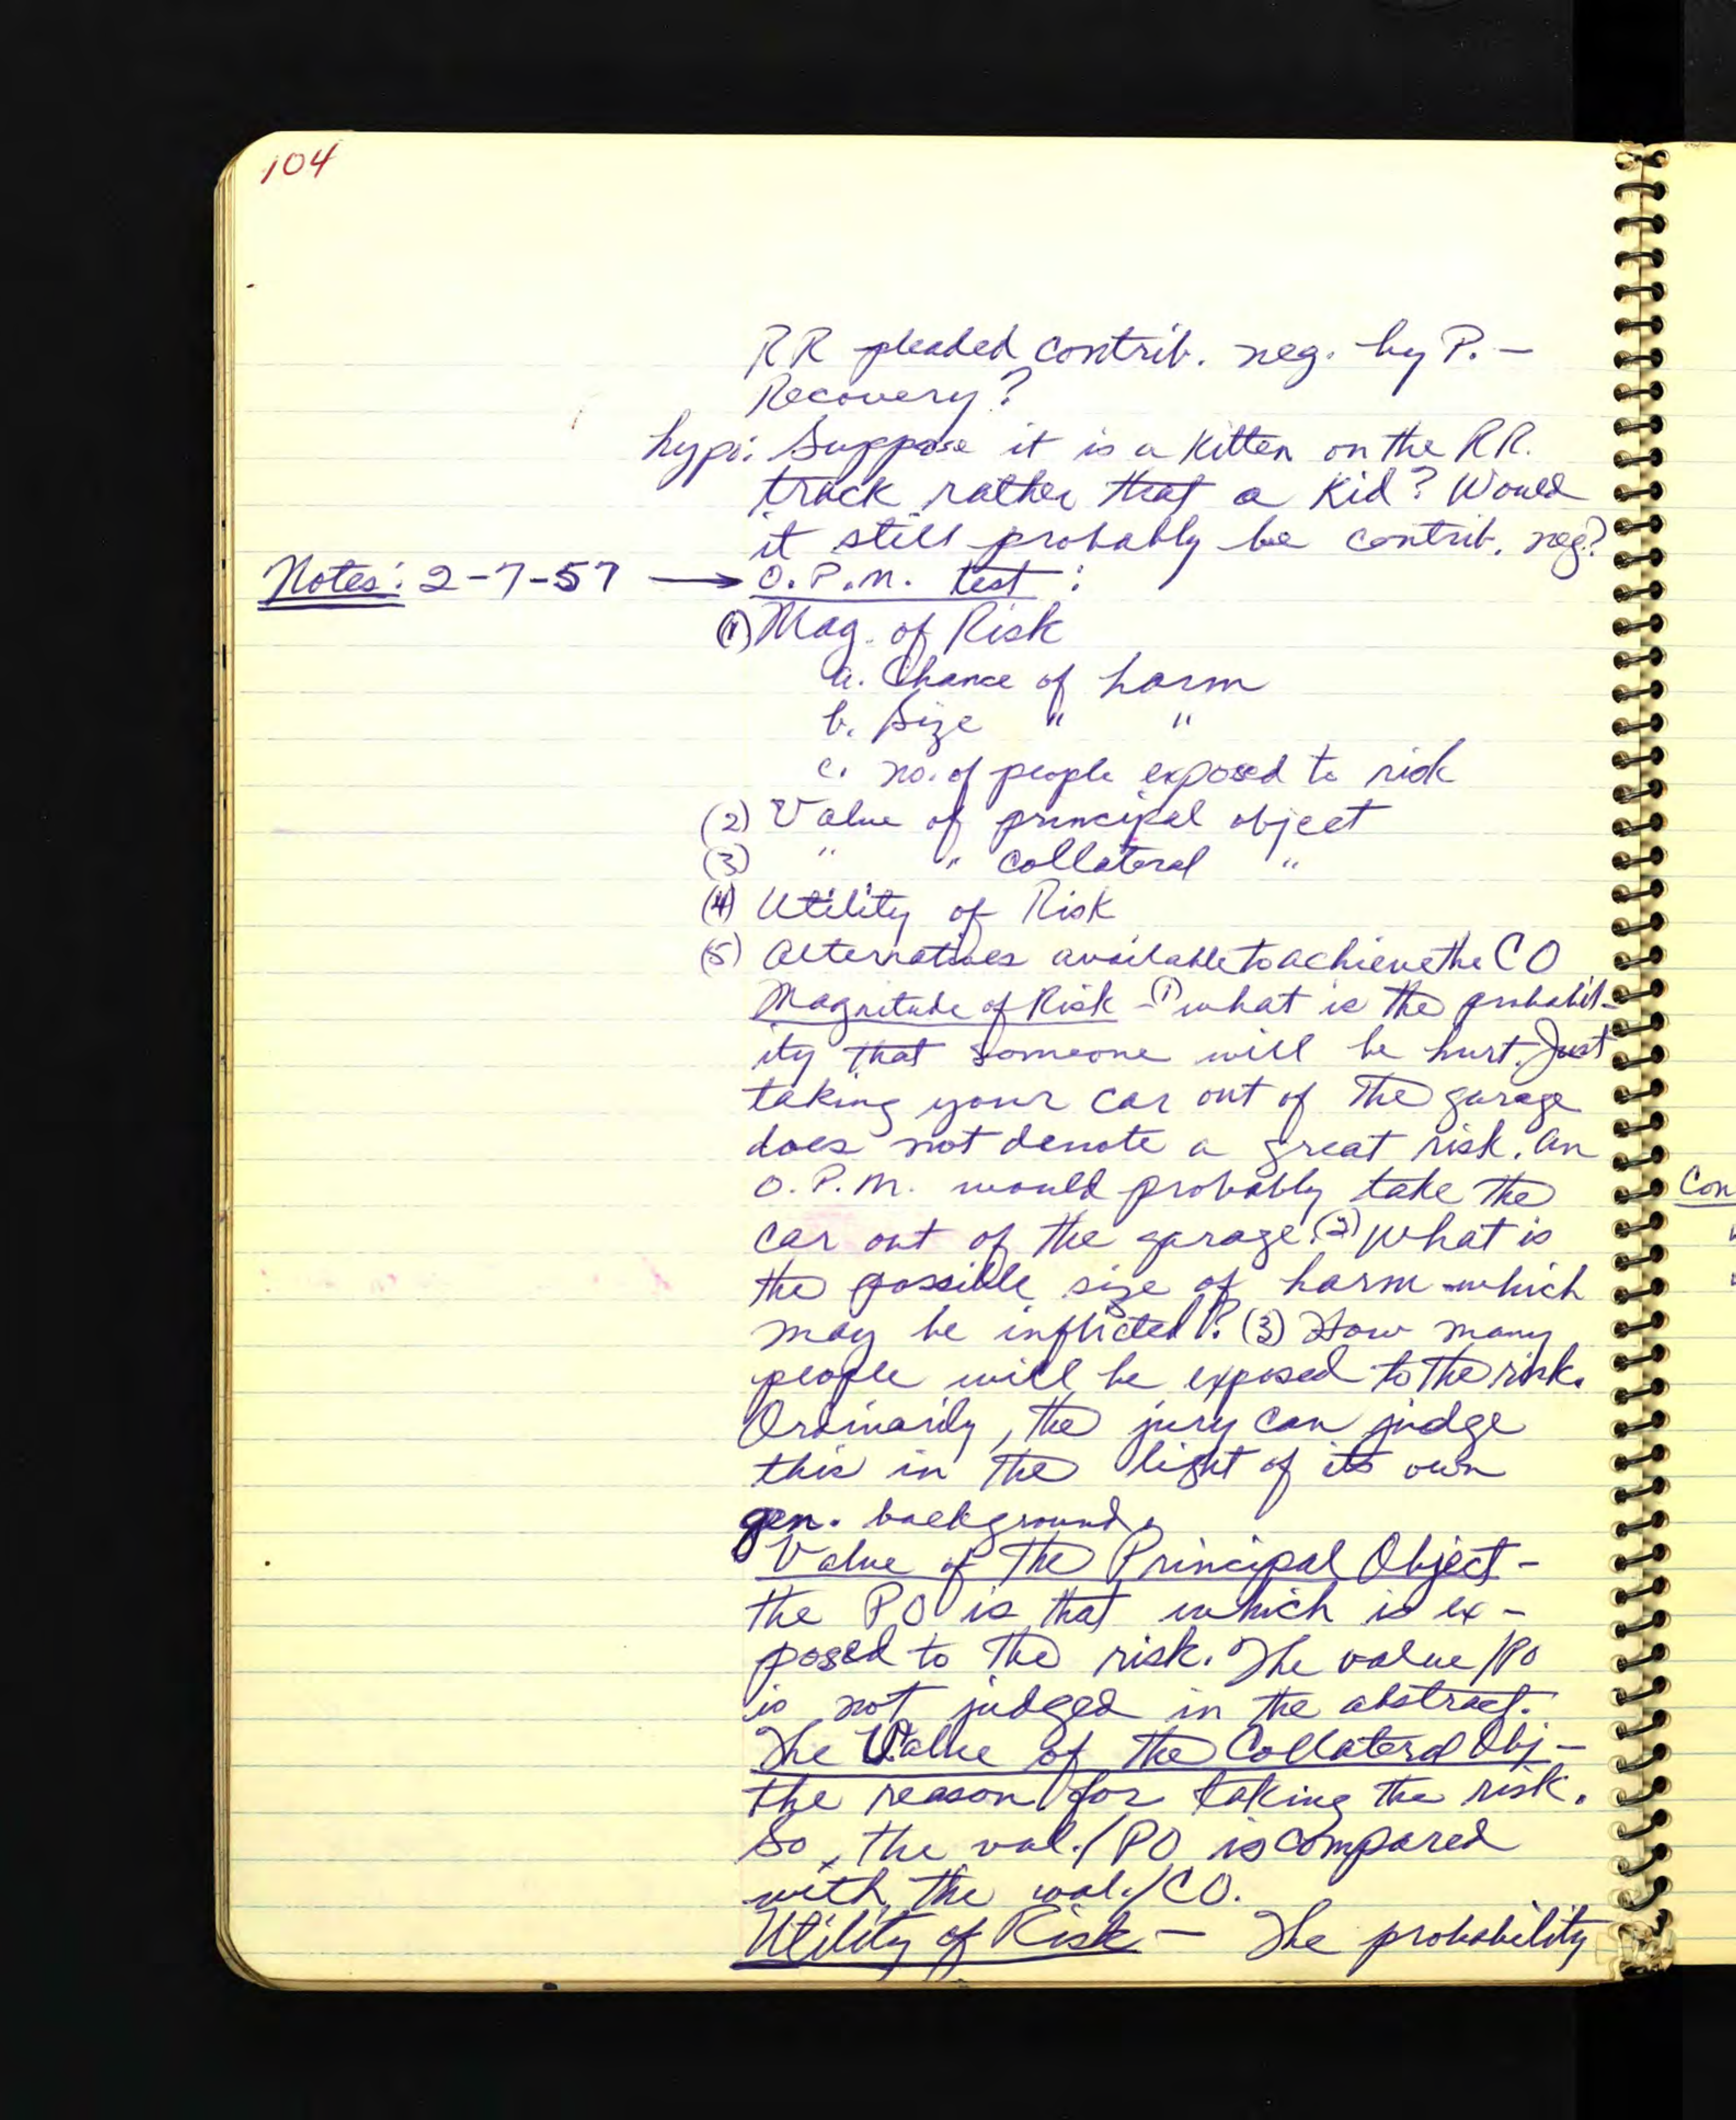 104
RR pleaded contrib. neg. by P. —
Recovery?
hypo: Suppose it is a kitten on the RR.
track rather that a kid? Would
it still probably be contrib. neg?
Notes: 2-7-57 → O.P.M. test:
(1) Mag. of Risk
a. Chance of harm
b. Size " "
c. no. of people exposed to risk
(2) Value of principal object
(3) " " collateral "
(4) Utility of Risk
(5) Alternatives available to achieve the CO
Magnitude of Risk - (1) what is the probabil-
ity that someone will be hurt. Just
taking your car out of the garage
does not denote a great risk. An
O.P.M. would probably take the
car out of the garage. (2) What is
the possible size of harm which
may be inflicted? (3) How many
people will be exposed to the risk.
Ordinarily, the jury can judge
this in the light of its own
gen. background.
Value of the Principal Object -
the PO is that which is ex-
posed to the risk. The value/PO
is not judged in the abstract.
The Value of the Collateral Obj -
the reason for taking the risk.
So, the val./PO is compared
with the val./CO.
Utility of Risk — The probability
Con